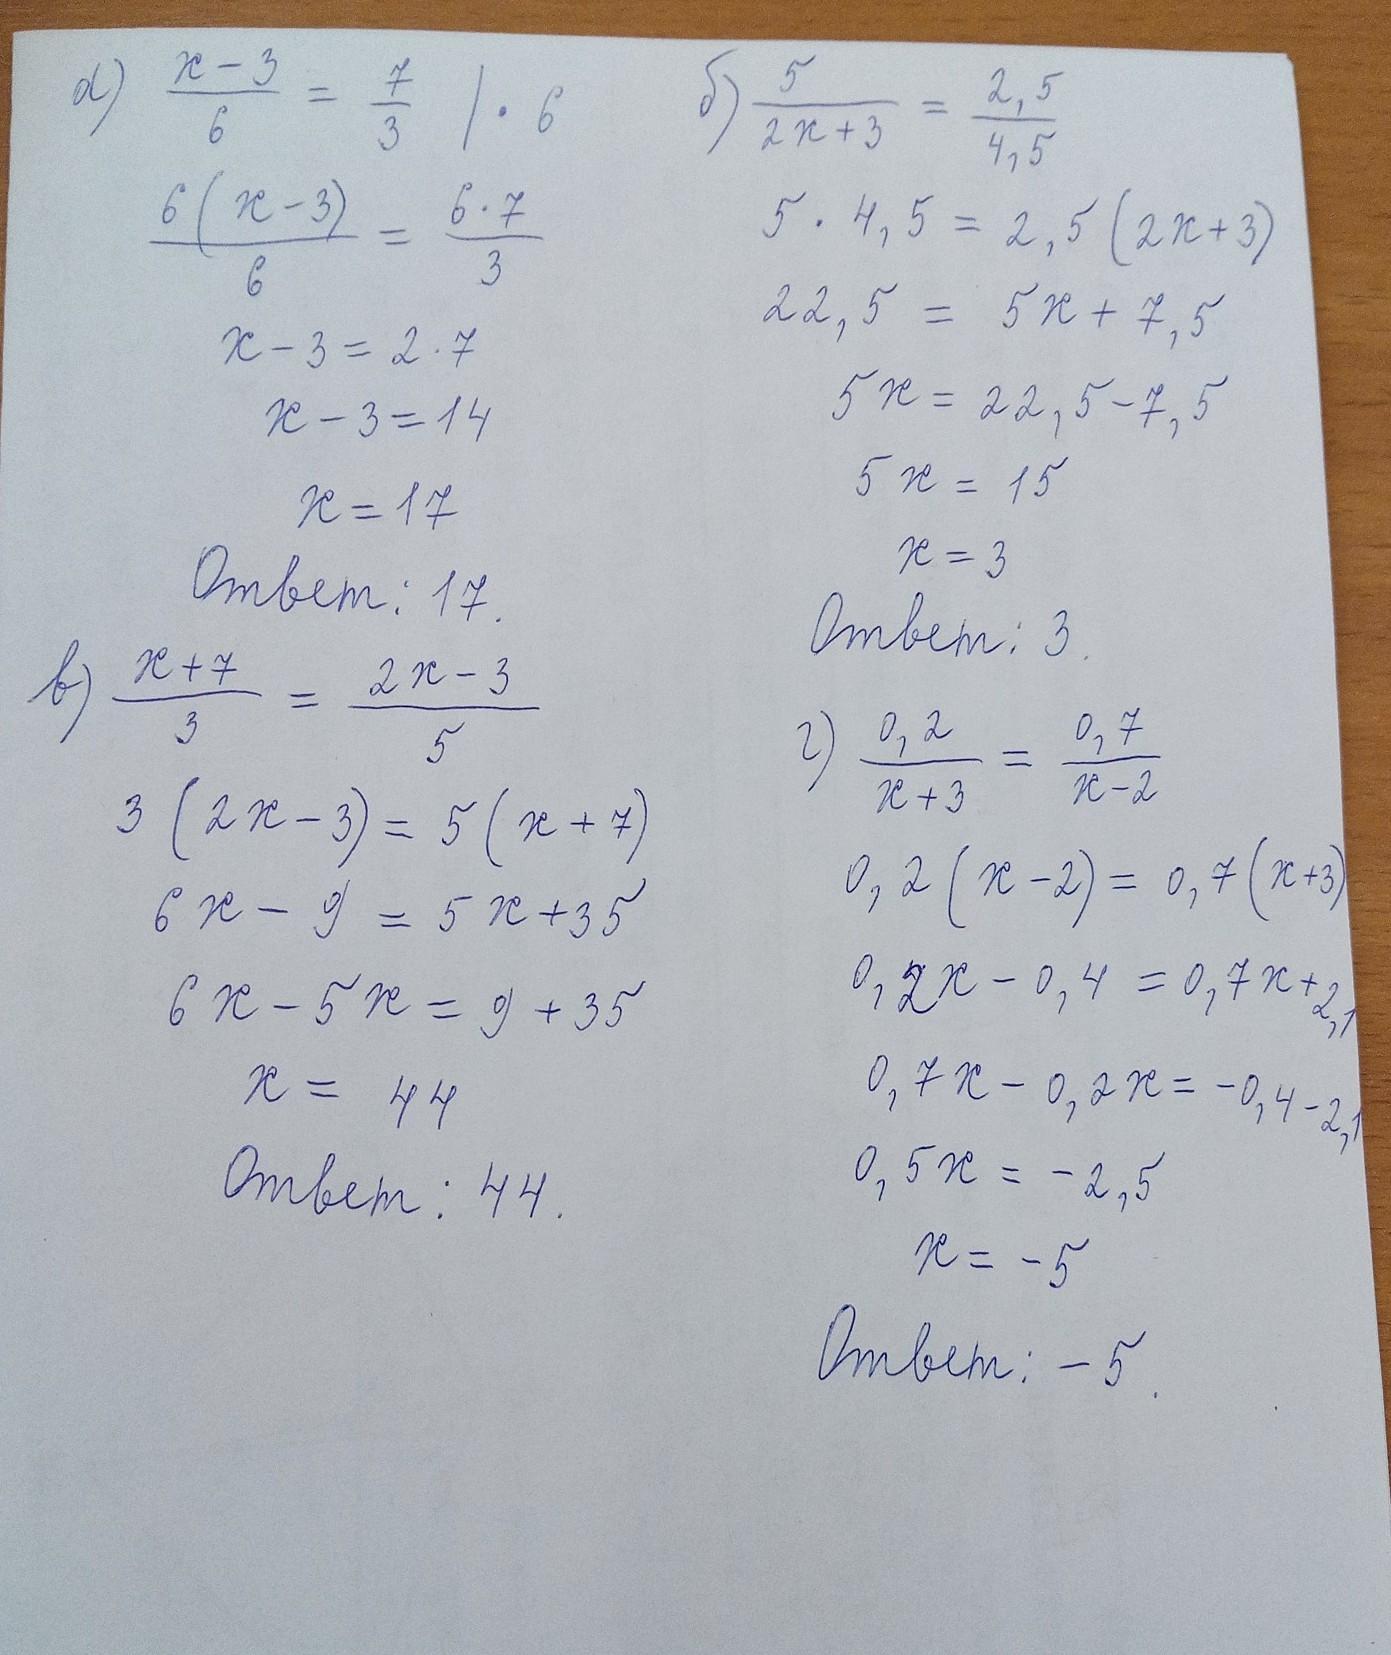 а) (x-3)/6 = 7/3 | · 6
6(x-3)/6 = 6·7/3
x-3=2·7
x-3=14
x=17
Ответ: 17.
б) 5/(2x+3) = 2,5/4,5
5 · 4,5 = 2,5(2x+3)
22,5 = 5x+7,5
5x = 22,5-7,5
5x = 15
x = 3
Ответ: 3.
в) (x+7)/3 = (2x-3)/5
3(2x-3) = 5(x+7)
6x-9 = 5x+35
6x-5x = 9+35
x = 44
Ответ: 44.
г) 0,2/(x+3) = 0,7/(x-2)
0,2(x-2) = 0,7(x+3)
0,2x-0,4 = 0,7x+2,1
0,7x-0,2x = -0,4-2,1
0,5x = -2,5
x = -5
Ответ: -5.